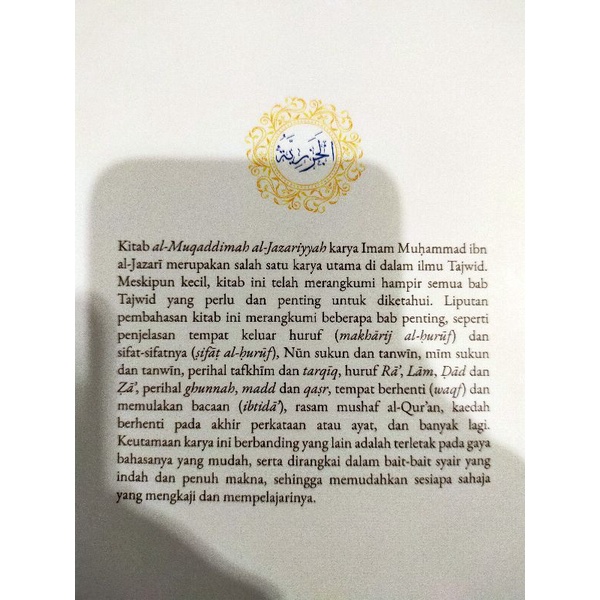 الجَزَرِيَّة
Kitab al-Muqaddimah al-Jazariyyah karya Imam Muḥammad ibn
al-Jazarī merupakan salah satu karya utama di dalam ilmu Tajwid.
Meskipun kecil, kitab ini telah merangkumi hampir semua bab
Tajwid yang perlu dan penting untuk diketahui. Liputan
pembahasan kitab ini merangkumi beberapa bab penting, seperti
penjelasan tempat keluar huruf (makhārij al-ḥurūf) dan
sifat-sifatnya (ṣifāṭ al-ḥurūf), Nūn sukun dan tanwīn, mīm sukun
dan tanwīn, perihal tafkhīm dan tarqīq, huruf Rā’, Lām, Ḍād dan
Ẓā’, perihal ghunnah, madd dan qaṣr, tempat berhenti (waqf) dan
memulakan bacaan (ibtidā’), rasam mushaf al-Qur’an, kaedah
berhenti pada akhir perkataan atau ayat, dan banyak lagi.
Keutamaan karya ini berbanding yang lain adalah terletak pada gaya
bahasanya yang mudah, serta dirangkai dalam bait-bait syair yang
indah dan penuh makna, sehingga memudahkan sesiapa sahaja
yang mengkaji dan mempelajarinya.